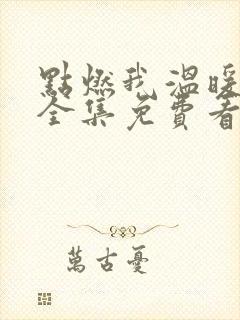 點燃我溫暖
全集免費看
萬古憂